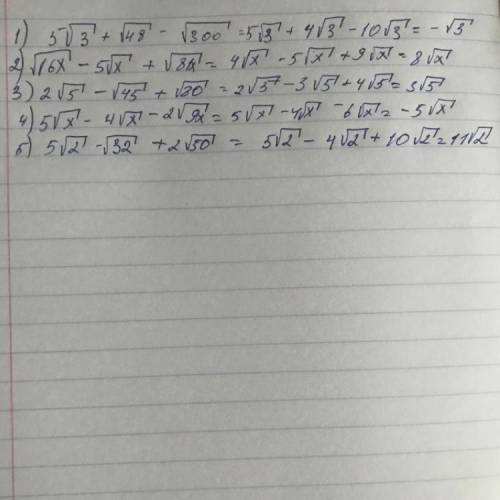 1) 5√3 + √48 - √300 = 5√3 + 4√3 - 10√3 = -√3
2) √16x - 5√x + √81x = 4√x - 5√x + 9√x = 8√x
3) 2√5 - √45 + √80 = 2√5 - 3√5 + 4√5 = 3√5
4) 5√x - 4√x - 2√9x = 5√x - 4√x - 6√x = -5√x
5) 5√2 - √32 + 2√50 = 5√2 - 4√2 + 10√2 = 11√2